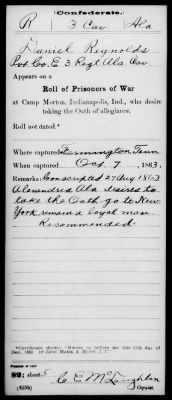 Confederate.
R 3 Cav Ala
Daniel Reynolds
Pvt Co. E 3 Regt Ala Cav
Appears on a
Roll of Prisoners of War
at Camp Morton, Indianapolis, Ind., who desire
taking the Oath of allegiance.
Roll not dated.
Where captured Farmington Tenn
When captured Oct 7, 1863.
Remarks: Conscripted 27 Aug 1863
Alexandria Ala desires to
take the Oath go to New
York remain a loyal man
Recommended
Number of roll:
sheet 5
C E McLaughlin
Copyist.